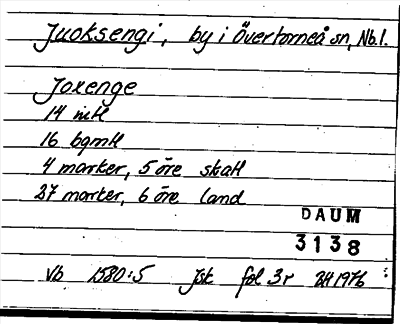 Juoksengi, by i Övertorneå sn, Nb.l.
Joxenge
14 mtl
16 bgmtl
4 marker, 5 öre skatt
27 marker, 6 öre land
DAUM
3138
Vb 1580:5 Jsk fol 3r 1976